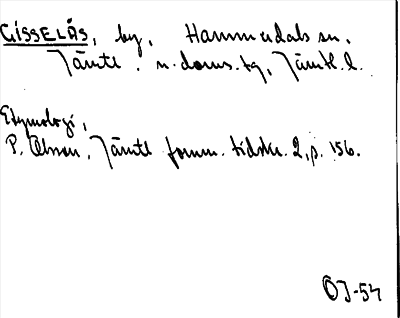 GISSELÅS, by, Hammerdals sn.
Jämtl. n. doms. tg, Jämtl. l.
Etymologi,
P. Olsson, Jämtl fornm. tidskr. 2, p. 156.
ÖJ-54